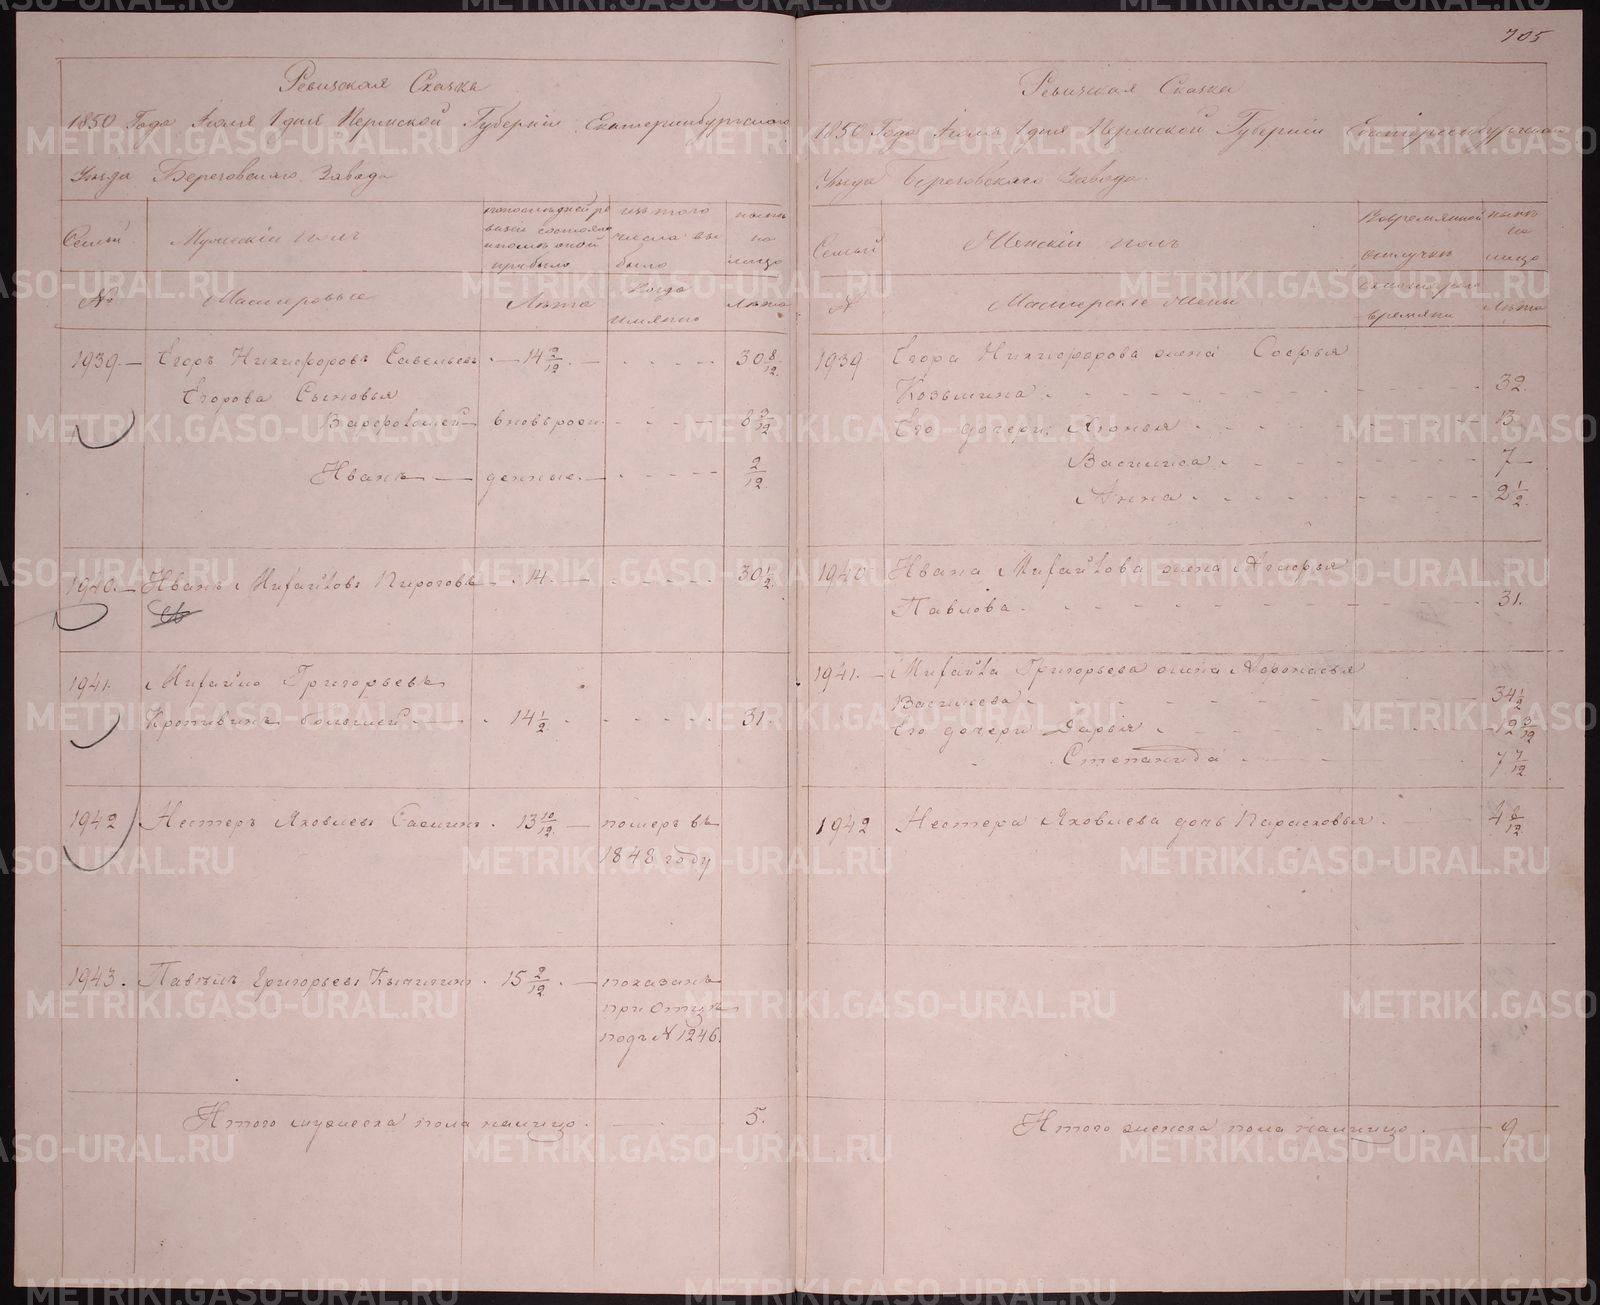 705
Ревизская Сказка
1850 Года Іюля 1 дня Пермской Губерніи Екатеринбургскаго
Уезда Березовскаго Завода
Семьи
Мужескій полъ
попоследней ре
визіи состояло
и после оной
прибыло
изъ того
числа вы
было
ныне
на
лицо
№
Мастеровые
Лета
Когда
имянно
Лета
1939. Егоръ Никифоровъ Савельевъ 14 2/12 30 8/12
Егорова Сыновья
Варфоломей вновь рож 8 3/12
Иванъ денные 2/12
1940. Иванъ Михайловъ Пироговъ 14 30 1/2
1941. Михайло Григорьевъ
Кропивинъ большей 14 1/2 31.
1942 Нестеръ Яковлевъ 13 10/12 померъ въ
1848 году
1943. Григорьевъ 15 2/12 показанъ
при Отце
подъ № 1246.
Итого мужеска пола налицо 5.
Ревизская Сказка
1850 Года Іюля 1 дня Пермской Губерніи Екатеринбургскаго
Уезда Березовскаго Завода
Семьи
Женскій полъ
Во временной
отлучке
ныне
на
лицо
№
Мастерские жены
времяни
Лета
1939 Егора Никифорова жена Софья
Козьмина 32.
Его дочери Афонья 13
Василиса 7
Анна 2 1/2
1940 Ивана Михайлова жена Агафья
Павлова 31.
1941. Михайла Григорьева жена Афонасья
Васильева 34 1/2
Его дочери Дарья 12 3/12
Степанида 7 7/12
1942 Нестера Яковлева дочь Парасковья 4 8/12
Итого женска пола налицо 9
METRIKI.GASO-URAL.RU